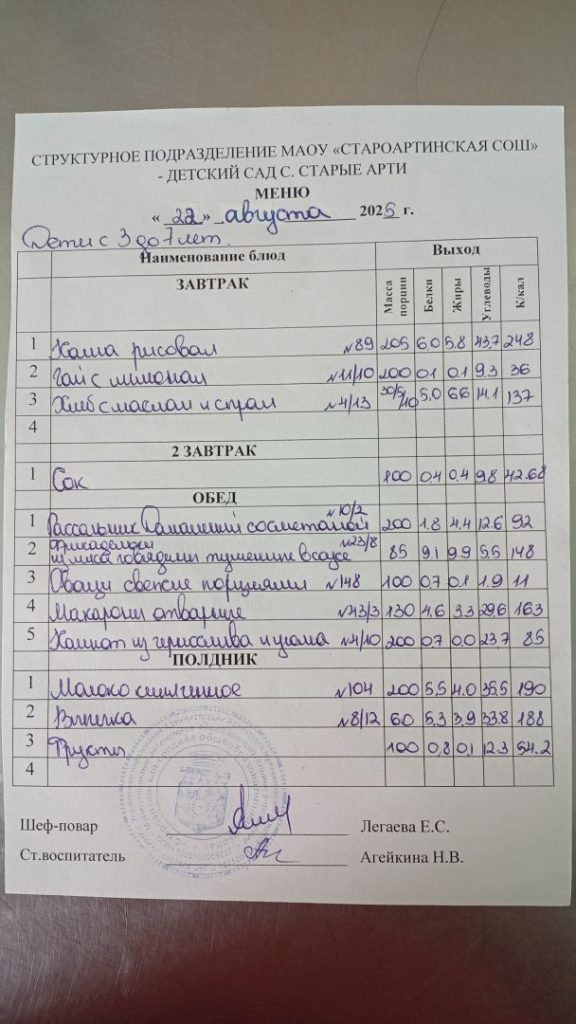 СТРУКТУРНОЕ ПОДРАЗДЕЛЕНИЕ МАОУ «СТАРОАРТИНСКАЯ СОШ»
- ДЕТСКИЙ САД С. СТАРЫЕ АРТИ
МЕНЮ
« 22 » августа 2025 г.
Дети с 3 до 7 лет.
Наименование блюд Выход
ЗАВТРАК Масса порции Белки Жиры Углеводы К/кал
1 Каша рисовая №89 205 6.0 5.8 43.7 248
2 Чай с лимоном №11/10 200 0.1 0.1 9.3 36
3 Хлеб с маслом и сыром №4/13 30/5/10 5.0 6.6 14.1 137
4
2 ЗАВТРАК
1 Сок 100 0.4 0.4 9.8 42.68
ОБЕД
1 Рассольник Домашний со сметаной №10/2 200 1.8 4.4 12.6 92
2 Фрикадельки из мяса говядины тушенные в соусе №23/8 85 9.1 9.9 5.5 148
3 Овощи свежие порциями №148 100 0.7 0.1 1.9 11
4 Макароны отварные №43/3 130 4.6 3.3 29.6 163
5 Компот из чернослива и изюма №4/10 200 0.7 0.0 23.7 85
ПОЛДНИК
1 Молоко кипяченное №104 200 5.5 4.0 35.5 190
2 Выпечка №8/12 60 5.3 3.9 33.8 188
3 Фрукты 100 0.8 0.1 12.3 54.2
4
Шеф-повар Легаева Е.С.
Ст.воспитатель Агейкина Н.В.